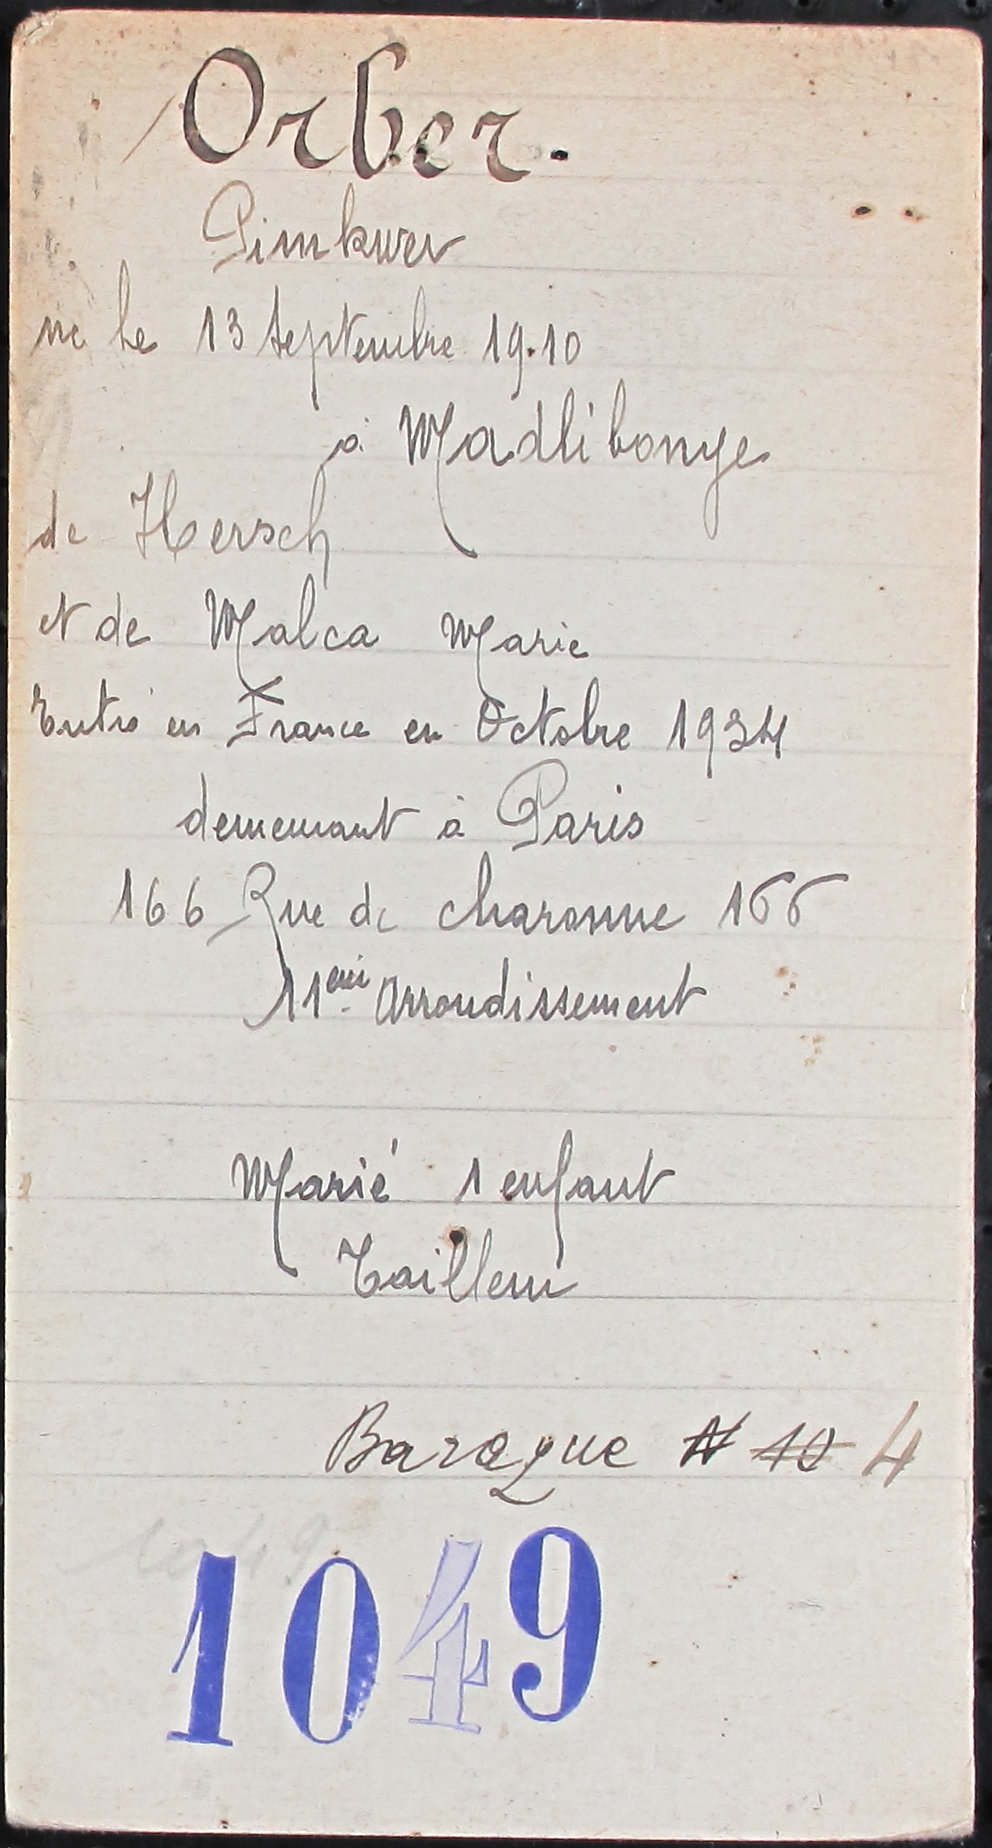 Orber.
Pimkwer
ne le 13 Septembre 19.10
à Madlibonye
de Hersch
et de Malca Marie
Entré en France en Octobre 1934
demeurant à Paris
166 Rue de charonne 166
11eme Arrondissement
Marié 1 enfant
Tailleur
Baraque N 10 4
1049
1049